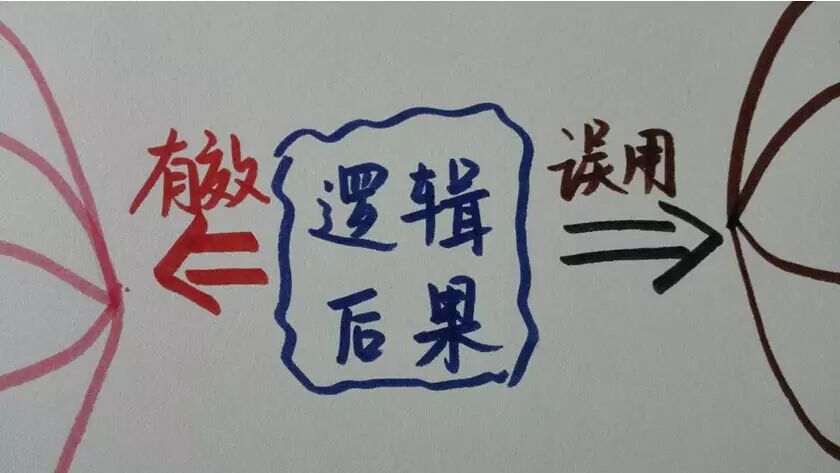 有效
逻辑
后果
误用